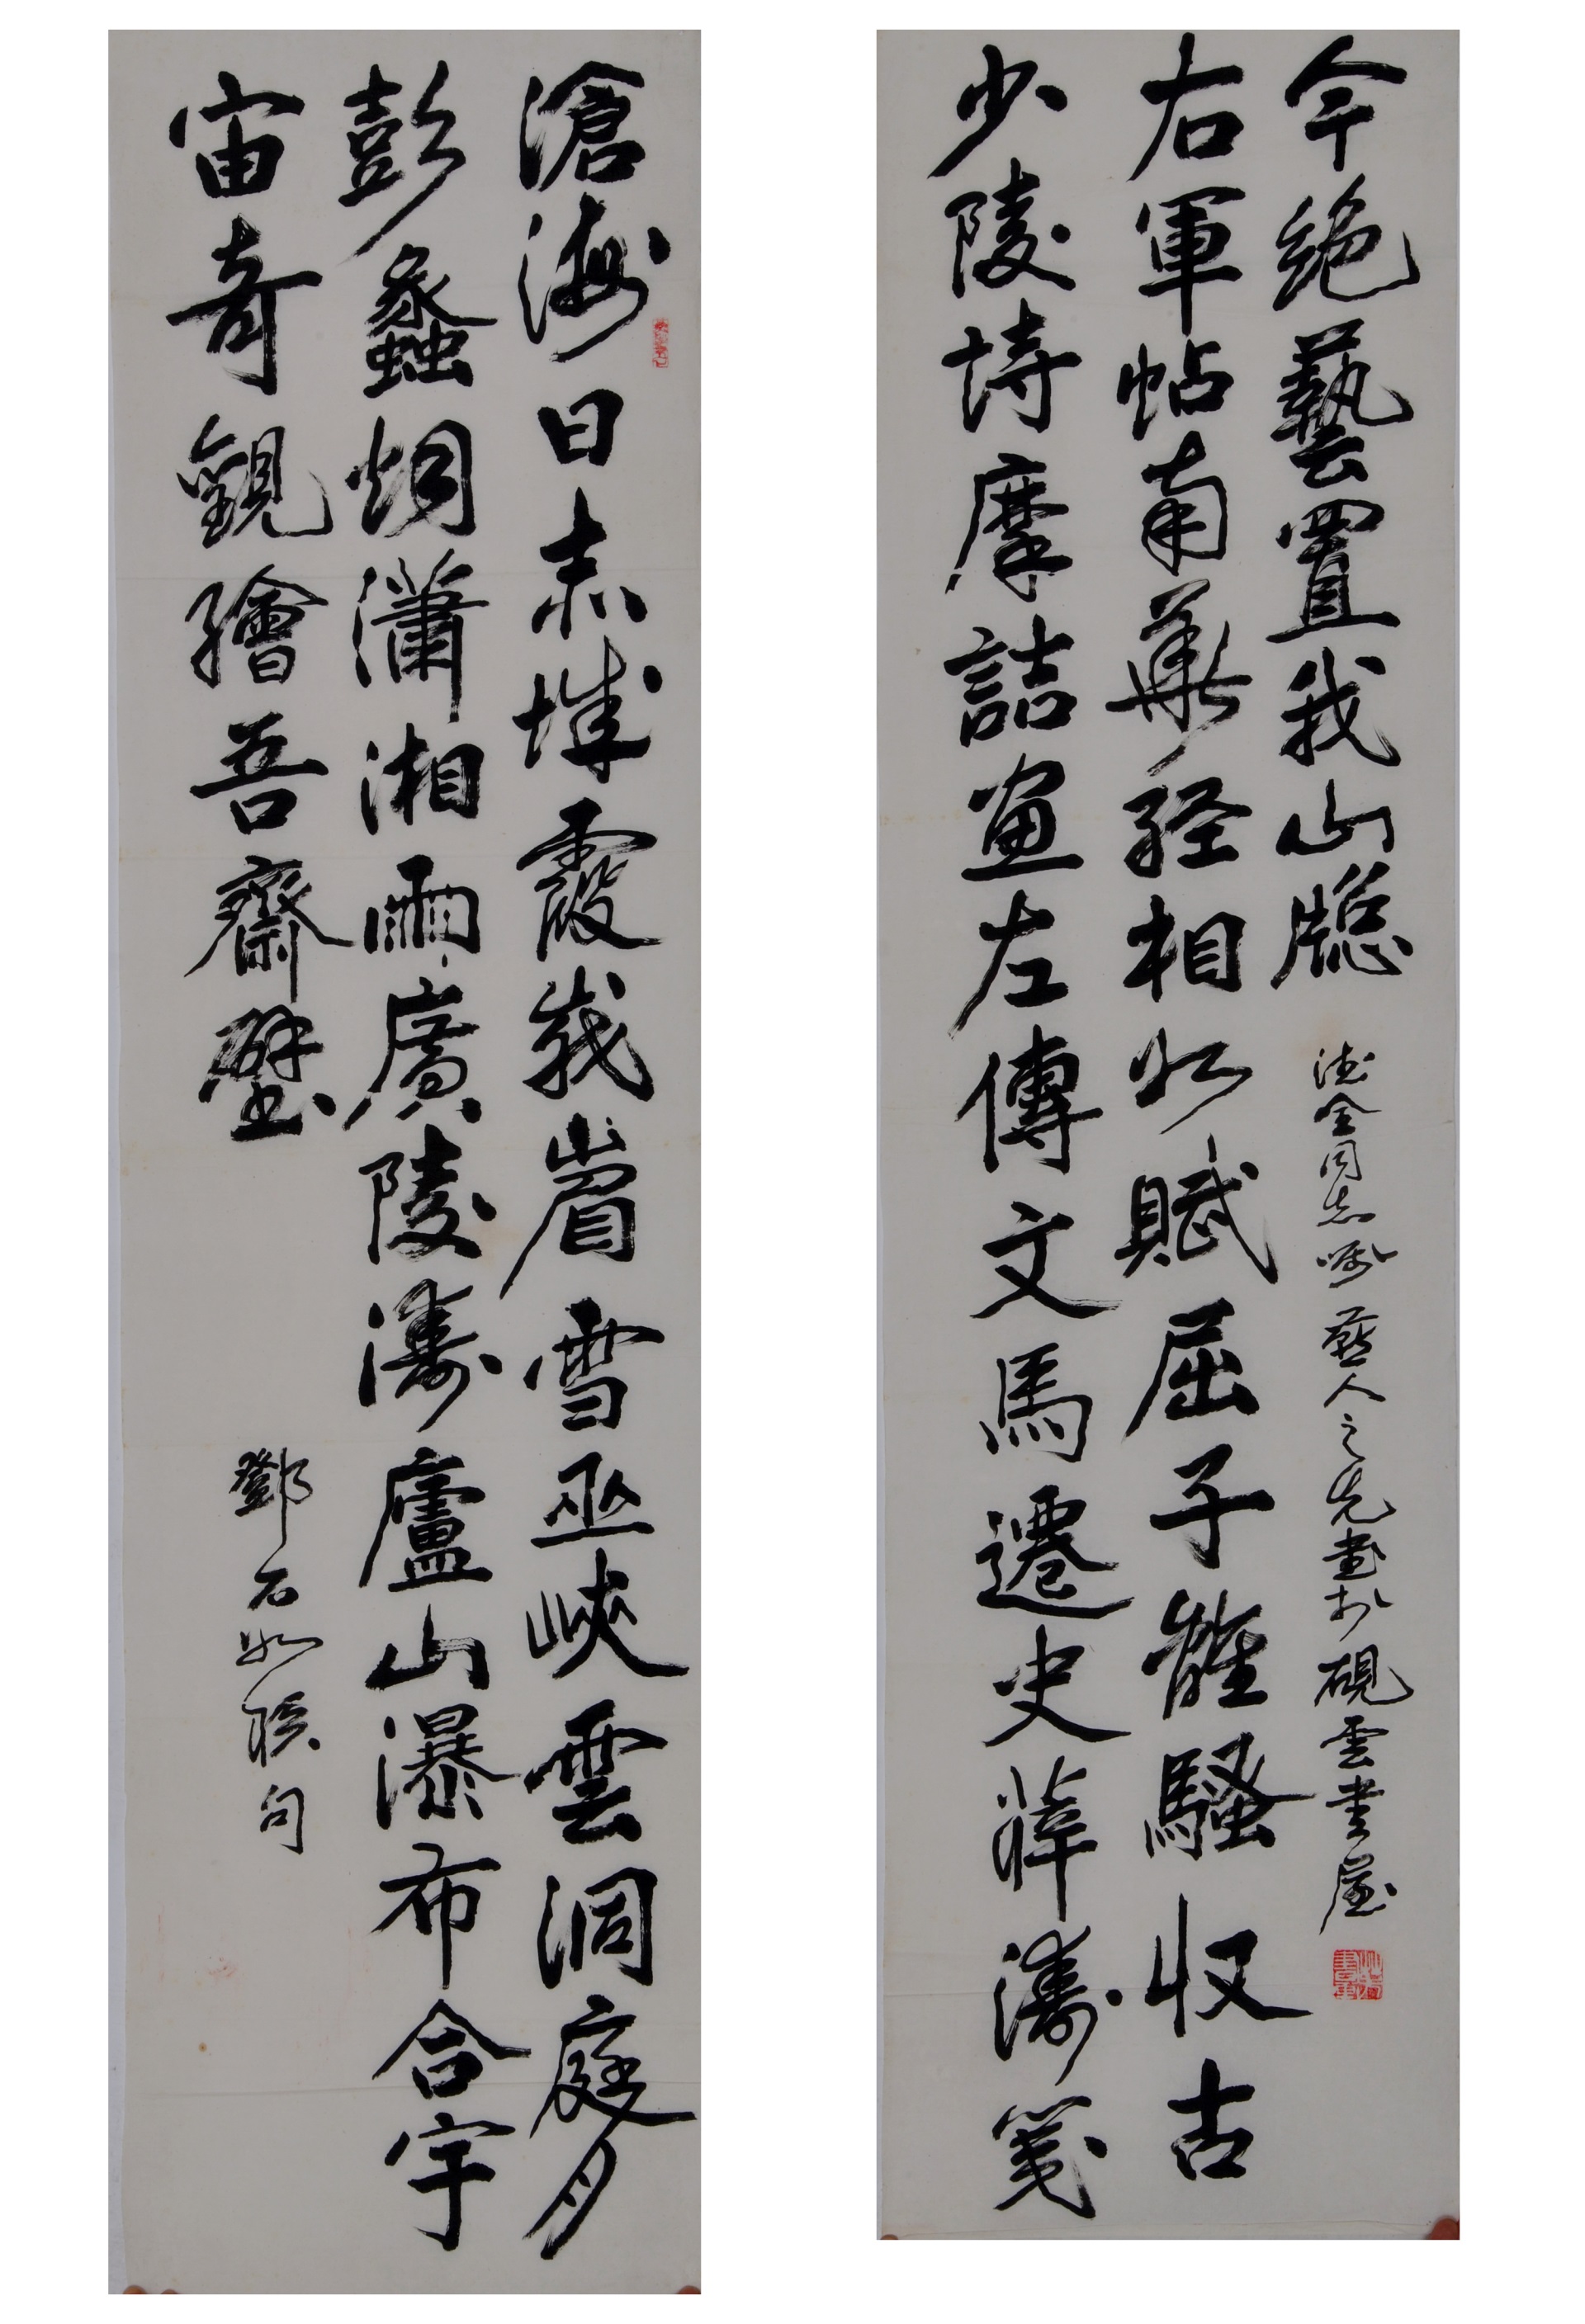 滄海日赤城霞峩嵋雪巫峽雲洞庭月
彭蠡烟瀟湘雨廣陵濤廬山瀑布合宇
宙奇觀繪吾齋壁
鄧石如聯句
少陵詩摩詰畫左傳文馬遷史薛濤箋
右軍帖南華經相如賦屈子離騷収古
今絕藝置我山牕
德全同志囑 燕人之先書於硯雲書屋